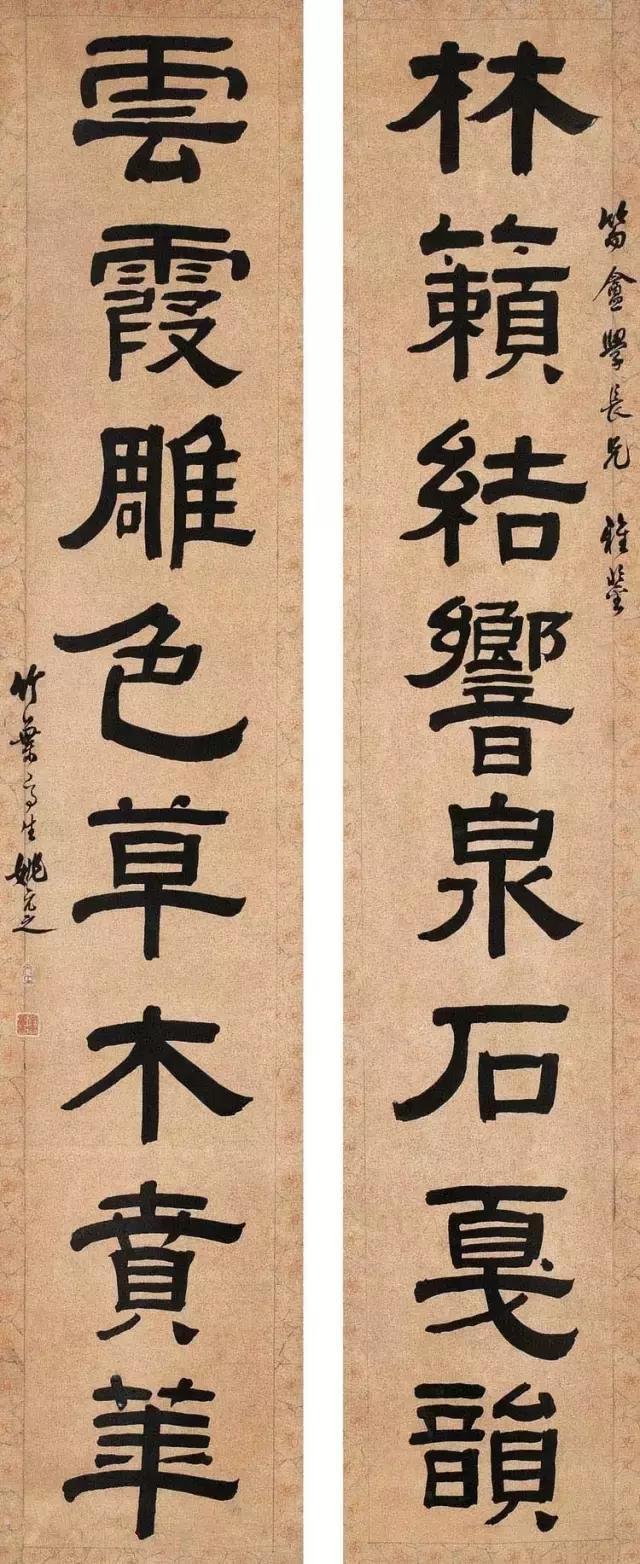 笛盦學長兄 雅鑒
林籟結響泉石戛韻
雲霞雕色草木賁華
竹葉亭生姚元之